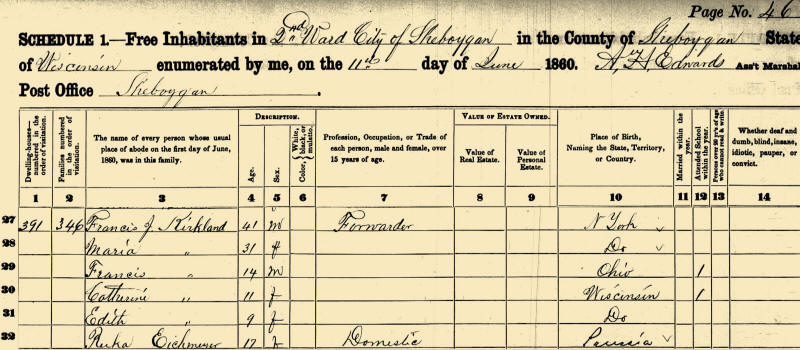 Page No. 46
SCHEDULE 1.—Free Inhabitants in 2nd Ward City of Sheboygan in the County of Sheboygan State
of Wisconsin enumerated by me, on the 11th day of June 1860. A. H. Edwards Ass't Marshal
Post Office Sheboygan.
Dwelling-houses—numbered in the order of visitation. Families numbered in the order of visitation. The name of every person whose usual place of abode on the first day of June, 1860, was in this family. DESCRIPTION. Age. Sex. Color, White, black, or mulatto. Profession, Occupation, or Trade of each person, male and female, over 15 years of age. VALUE OF ESTATE OWNED. Value of Real Estate. Value of Personal Estate. Place of Birth, Naming the State, Territory, or Country. Married within the year. Attended School within the year. Persons over 20 y'rs of age who cannot read & write. Whether deaf and dumb, blind, insane, idiotic, pauper, or convict.
1 2 3 4 5 6 7 8 9 10 11 12 13 14
27 391 346 Francis J Kirkland 41 m Forwarder N York
28 Maria " 31 f Do
29 Francis " 14 m Ohio 1
30 Catherine " 11 f Wisconsin 1
31 Edith " 9 f Do
32 Eichmeyer 17 f Domestic Prussia